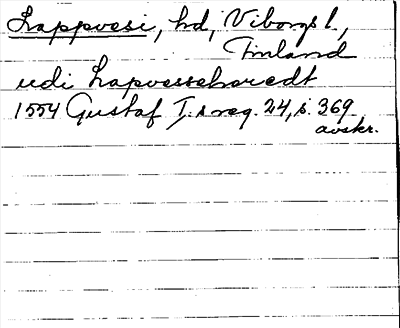 Lappvesi, hd, Viborgs l.,
Finland
udi Lapvesseharedt
1554 Gustaf I:s reg. 24, s. 369
avskr.